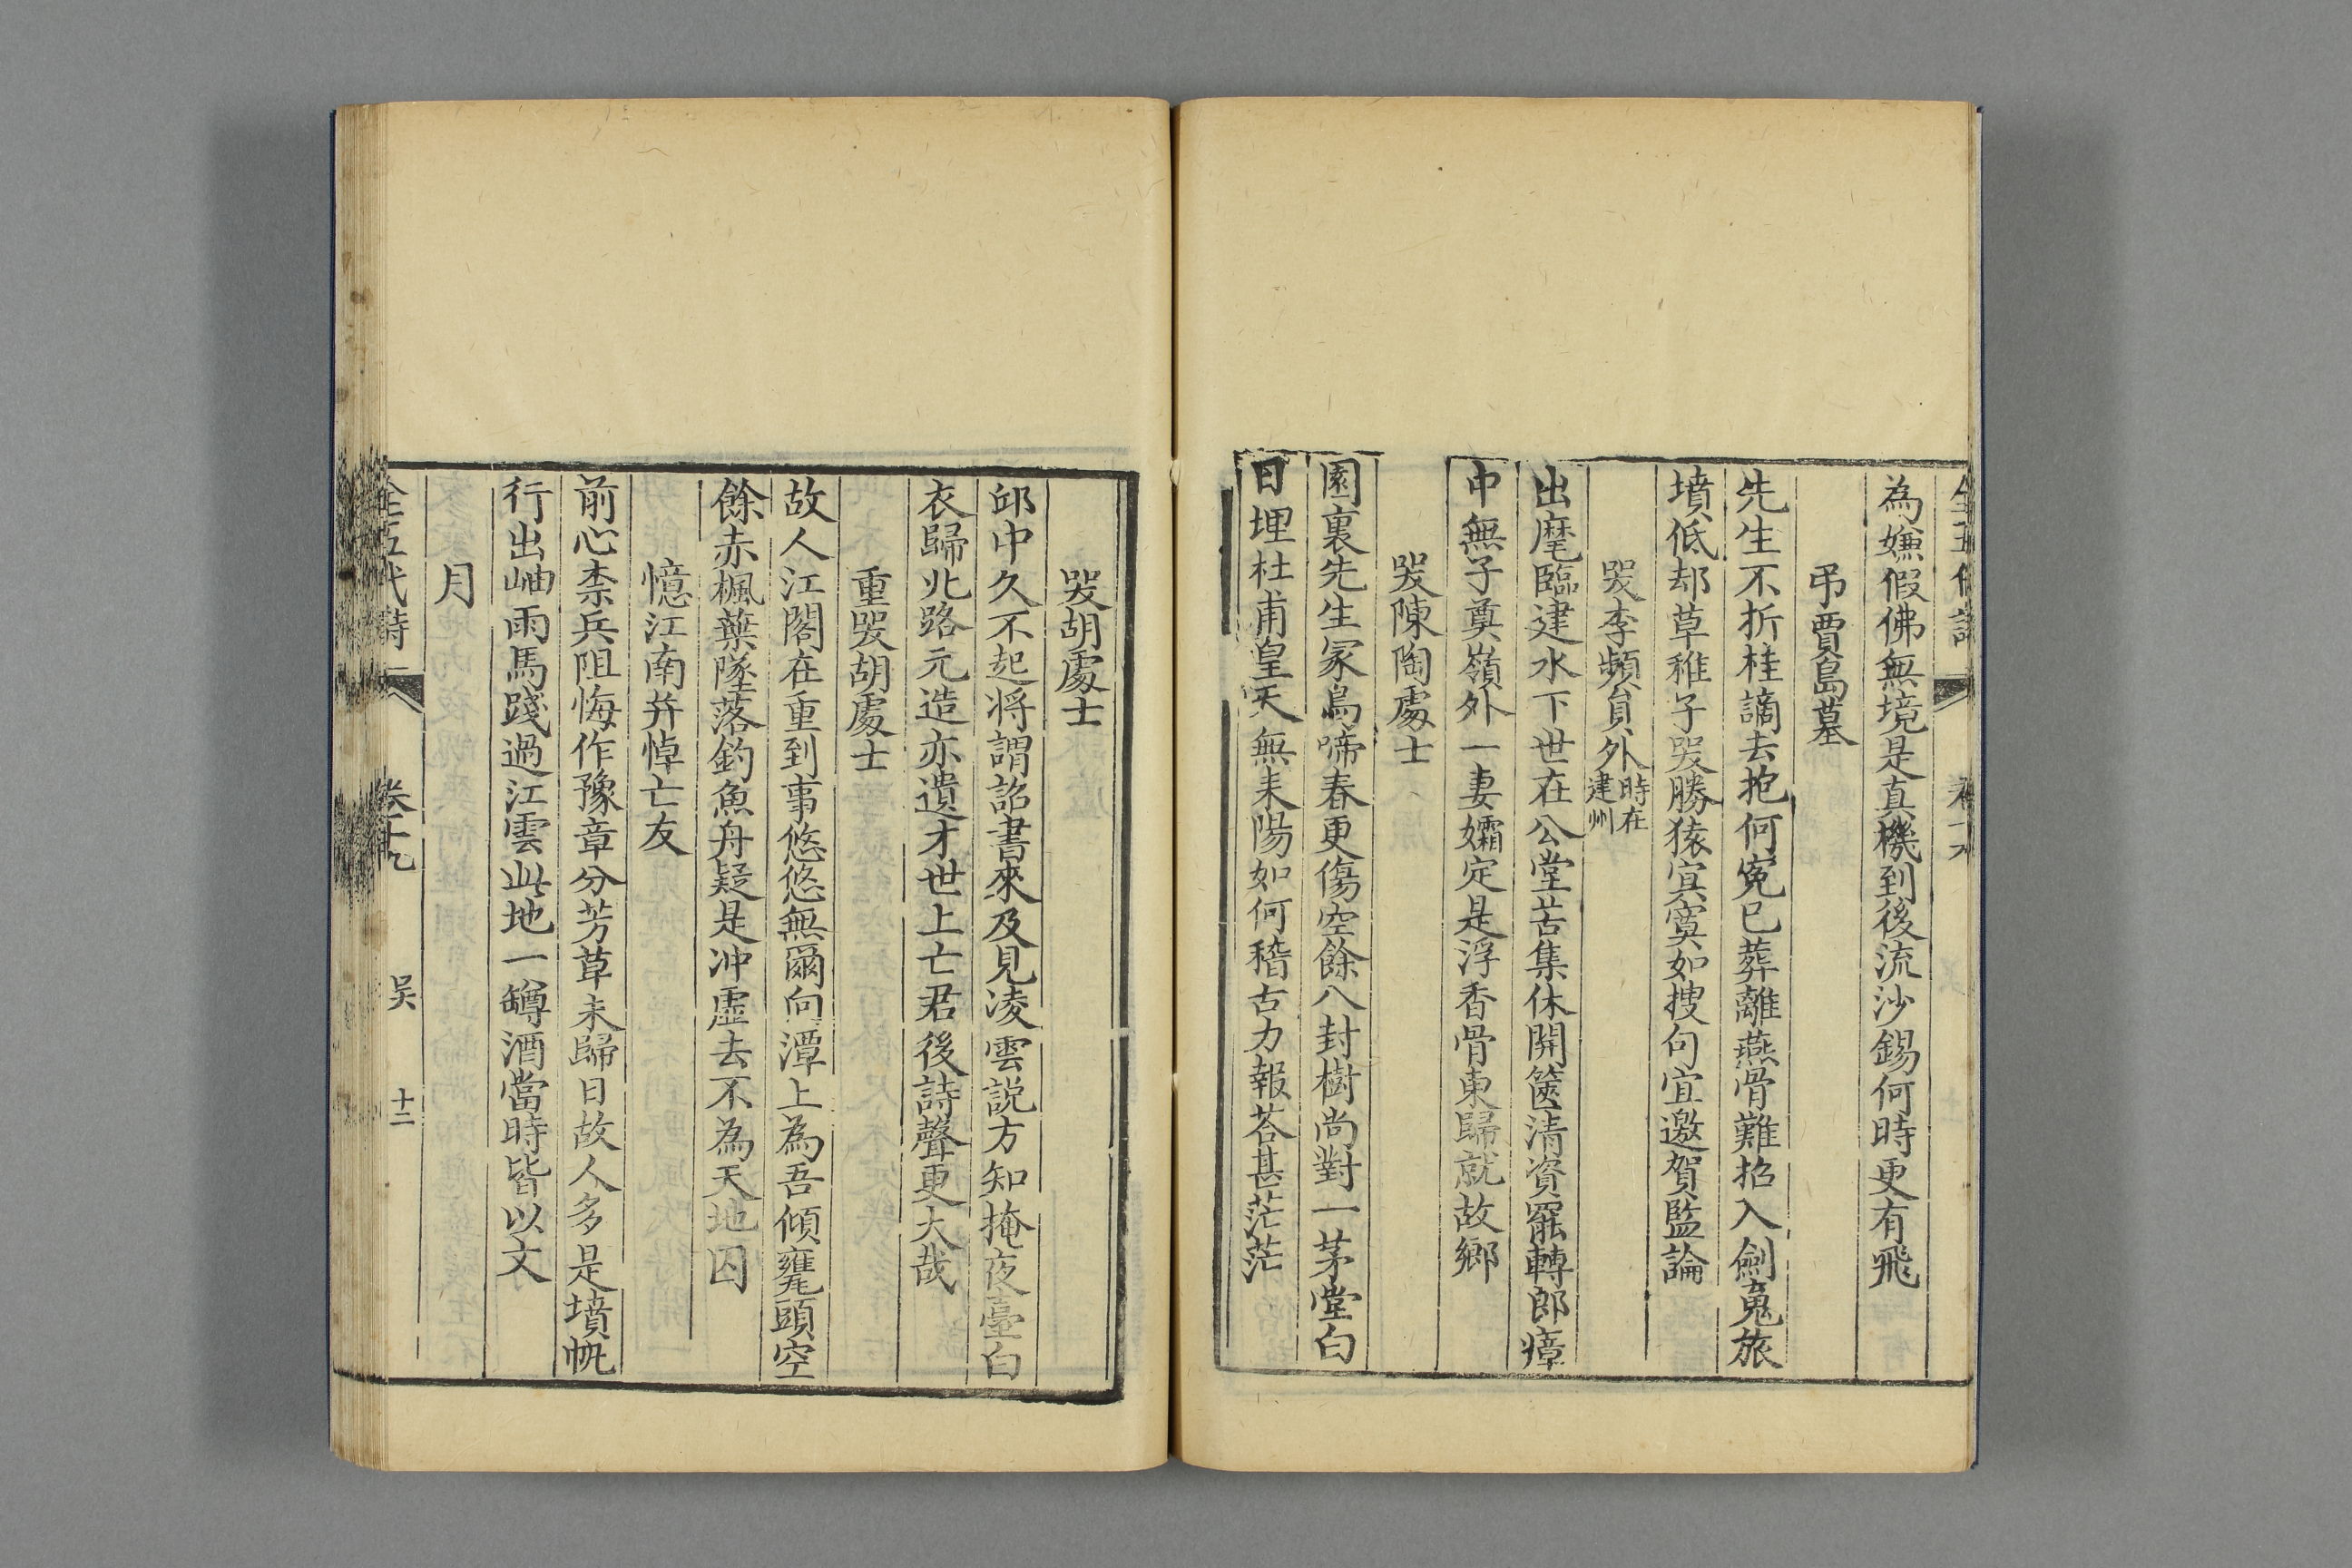 為嫌假佛無境是真機到後流沙錫何時更有飛
弔賈島墓
先生不折桂謫去抱何寃已葬離燕骨難招入劍䰟旅
墳低却草稚子哭勝猿寘寞如搜句宜邀賀監論
哭李頻員外時在建州
出麾臨建水下世在公堂苦集休開篋清資罷轉郎瘴
中無子奠嶺外一妻孀定是浮香骨東歸就故鄉
哭陳陶處士
園裏先生冢鳥啼春更傷空餘八封樹尚對一茅堂白
日埋杜甫皇天無耒陽如何稽古力報荅甚茫茫
哭胡處士
邱中久不起将謂詔書來及見凌雲説方知掩夜臺白
衣歸北路元造亦遺才世上亡君後詩聲更大哉
重哭胡處士
故人江閣在重到事悠悠無爾向潭上為吾傾甕頭空
餘赤楓葉墜落釣魚舟疑是冲虛去不為天地囚
憶江南并悼亡友
前心柰兵阻悔作豫章分芳草未歸日故人多是墳帆
行出岫雨馬踐過江雲此地一罇酒當時皆以文
月
全五代詩 卷十九 吴 十二